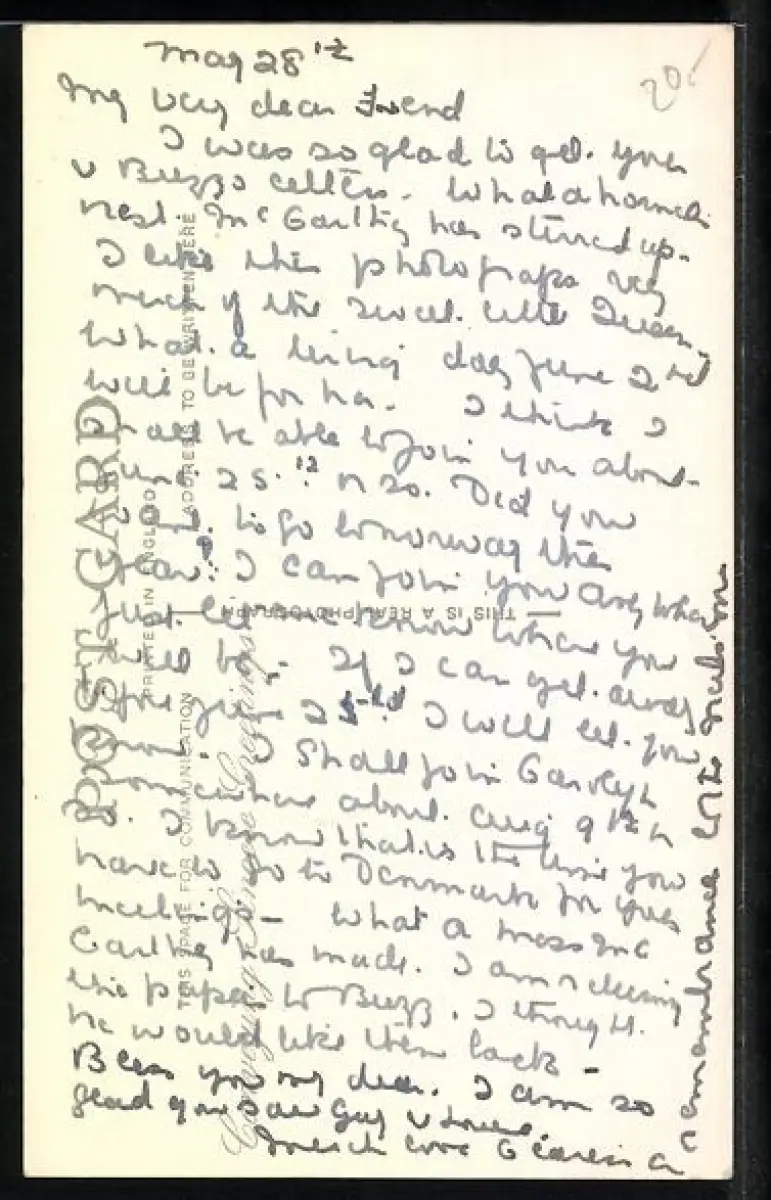 May 28th
20/
My very dear Friend
I was so glad to get your
& Buzzs letters. What a hornets
nest McCarthy has stirred up.
I like this photograph very
much of the sweet little Queen.
What a tiring day June 2nd
will be for her. I think I
shall be able to join you about
June 25th or so. Did you
want to go to Norway this
year? I can join you any where
Just let me know where you
will be. If I can get away
for June 25th I will let you
know. I shall join
about Aug 9th or
8. I know that is the time you
have to go to Denmark for your
meetings. What a mess Mc
Carthy has made. I am returning
the paper to Buzz. I thought
he would like them back
Bless you my dear. I am so
glad you saw Guy &
Much love
remembrance to
POST CARD
PRINTED IN ENGLAND
THIS SPACE FOR COMMUNICATION
ADDRESS TO BE WRITTEN HERE
THIS IS A REAL PHOTOGRAPH
Conveying Sincere Greetings